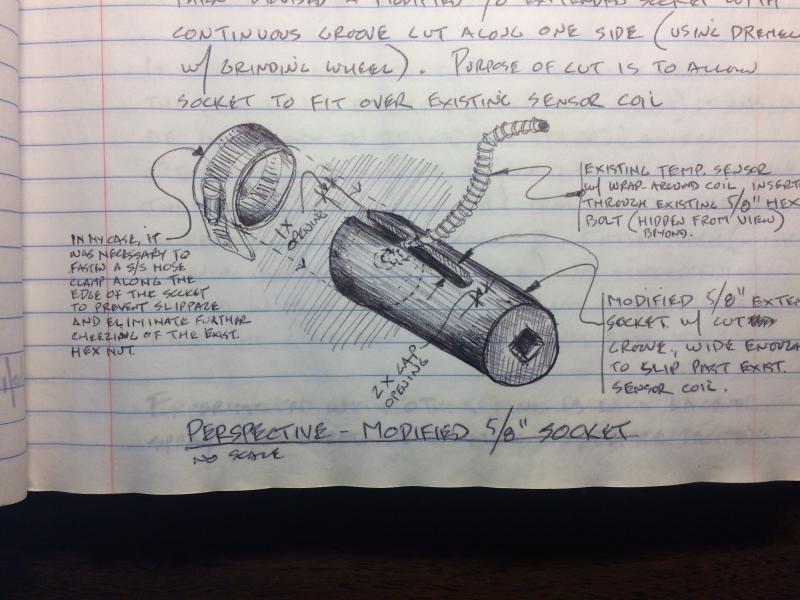 DEVISED A MODIFIED 5/8 EXTENDED SOCKET WITH
CONTINUOUS GROOVE CUT ALONG ONE SIDE (USING DREMEL
W/ GRINDING WHEEL). PURPOSE OF CUT IS TO ALLOW
SOCKET TO FIT OVER EXISTING SENSOR COIL
EXISTING TEMP. SENSOR
W/ WRAP-AROUND COIL, INSERT
THROUGH EXISTING 5/8" HEX
BOLT (HIDDEN FROM VIEW)
BEYOND.
1X
OPENING
IN MY CASE, IT
WAS NECESSARY TO
FASTEN A S/S HOSE
CLAMP ALONG THE
EDGE OF THE SOCKET
TO PREVENT SLIPPAGE
AND ELIMINATE FURTHER
OF THE EXIST.
HEX NUT.
MODIFIED 5/8" EXTEN
SOCKET W/ CUT
GROOVE, WIDE ENOUGH
TO SLIP PAST EXIST.
SENSOR COIL.
2X GAP
OPENING
PERSPECTIVE - MODIFIED 5/8" SOCKET
NO SCALE